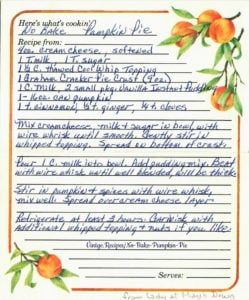 Here's what's cookin':
No Bake Pumpkin Pie
Recipe from:
4oz. cream cheese, softened
1 T. milk, 1 T. sugar
1½ C. thawed Cool Whip Topping
1 Graham Cracker Pie Crust (9oz.)
1 C. Milk, 2 small pkg. Vanilla Instant Pudding
1- 16oz can pumpkin
1 t. cinnamon, ½ t. ginger, ¼ t. cloves
Mix cream cheese, milk & sugar in bowl, with
wire whisk until smooth. Gently stir in
whipped topping. Spread on bottom of crust.
Pour 1 C. milk into bowl. Add pudding mix. Beat
with wire whisk until well blended, will be thick.
Stir in pumpkin & spices with wire whisk,
mix well. Spread over cream cheese layer
Refrigerate at least 3 hours. Garnish with
additional whipped topping & nuts if you like.
Vintage.Recipes/No-Bake-Pumpkin-Pie
Serves:
from Lady at May's Down